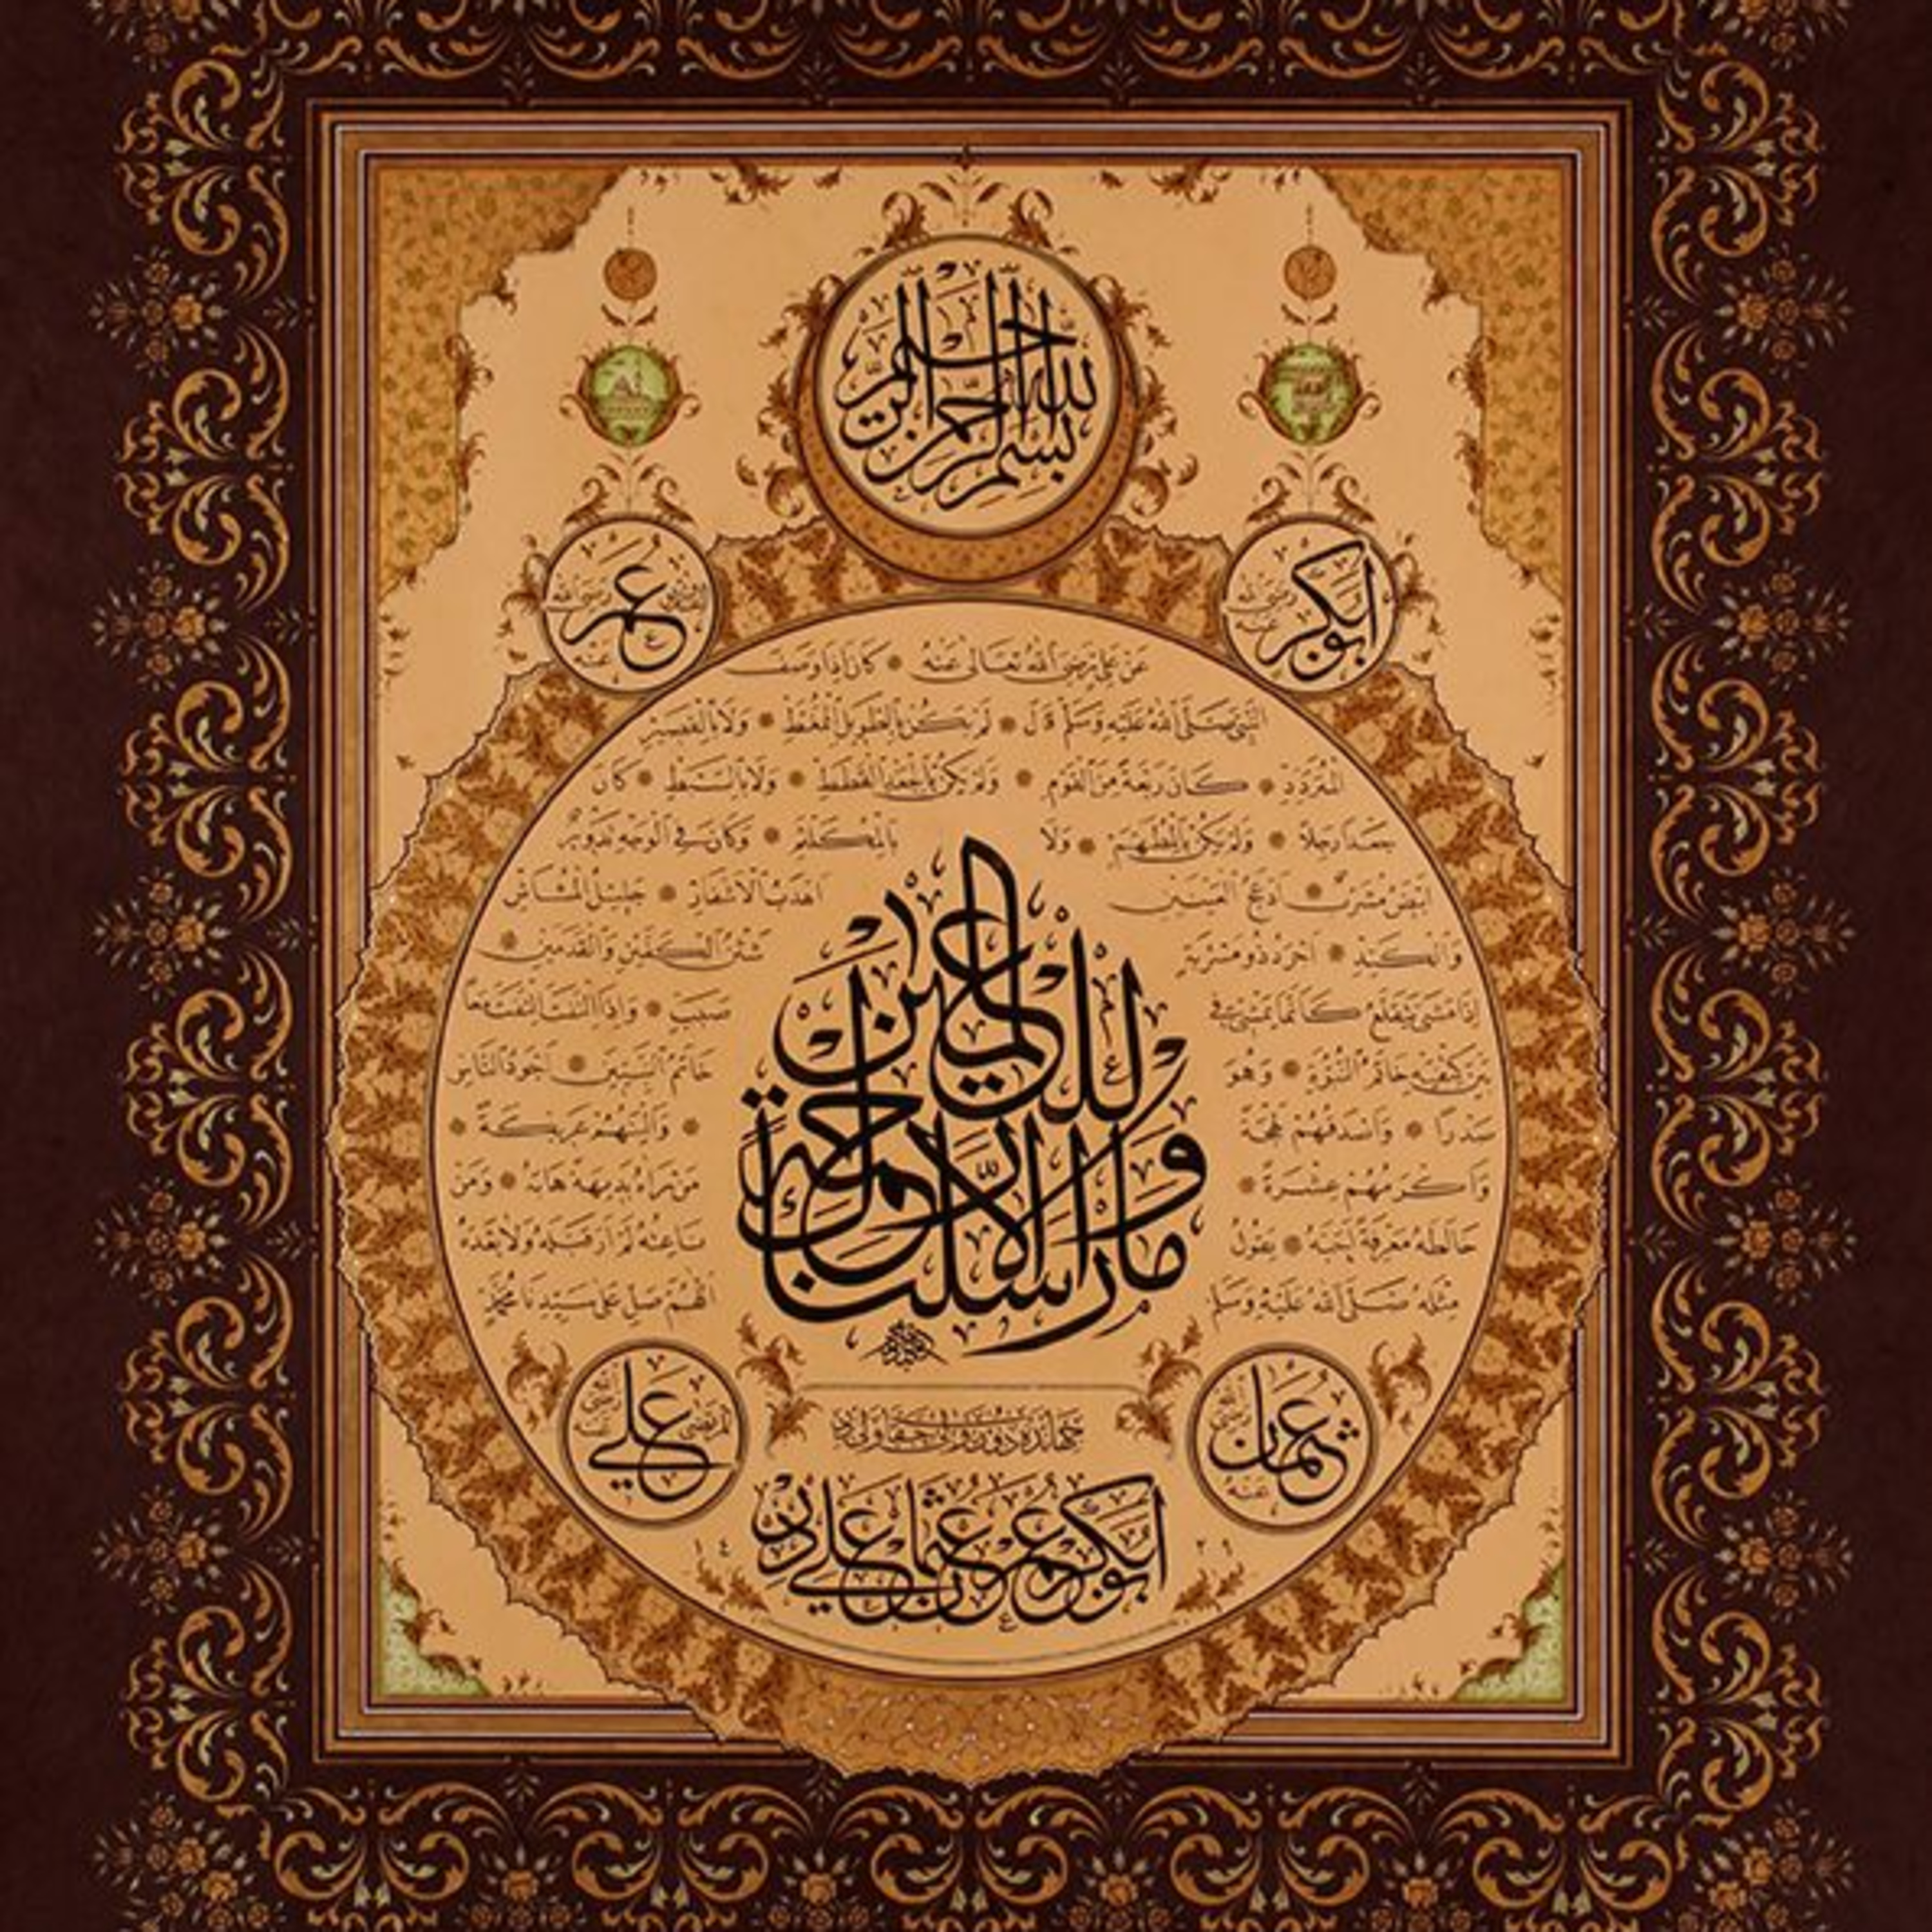 بسم الله الرحمن الرحيم
ابوبكر رضی الله عنه
عمر رضی الله عنه
عن علي رضى الله تعالى عنه كان اذا وصف
النبي صلى الله عليه وسلم قال لم يكن بالطويل الممغط ولا بالقصير
المتردد كان ربعة من القوم ولم يكن بالجعد القطط ولا بالسبط كان
جعدا رجلا ولم يكن بالمطهم ولا بالمكلثم وكان في الوجه تدوير
ابيض مشرب ادعج العينين اهدب الاشفار جليل المشاش
والكتد اجرد ذو مسربة شثن الكفين والقدمين
اذا مشى يتقلع كانما يمشي في صبب واذا التفت التفت معا
بين كتفيه خاتم النبوة وهو خاتم النبيين اجود الناس
صدرا واصدقهم لهجة والينهم عريكة
واكرمهم عشرة من راه بديهة هابه ومن
خالطه معرفة احبه يقول ناعته لم ار قبله ولا بعده
مثله صلى الله عليه وسلم اللهم صل على سيدنا محمد
وما ارسلناك الا رحمة للعالمين
عثمان رضی الله عنه
علي
ابوبكر عمر عثمان علي در
١٤٢٩